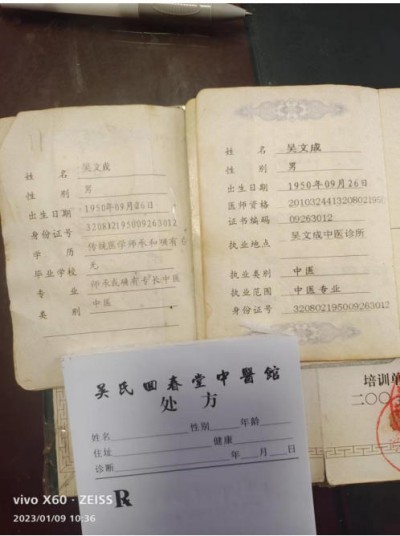 姓 名 吴文成
性 别 男
出生日期 1950年09月26日
身份证号 32082195009263012
学 历 传统医学师承和确有专
毕业学校 无
专 业 师承或确有专长中医
类 别 中医
姓 名 吴文成
性 别 男
出生日期 1950年09月26日
医师资格 201032441320821950
证书编码 09263012
执业地点 吴文成中医诊所
执业类别 中医
执业范围 中医专业
身份证号 320802195009263012
吴氏回春堂中醫館
处 方
姓名 性别 年龄
住址 健康
诊断 年 月 日
R
培训单
二〇〇
vivo X60 · ZEISS
2023/01/09 10:36